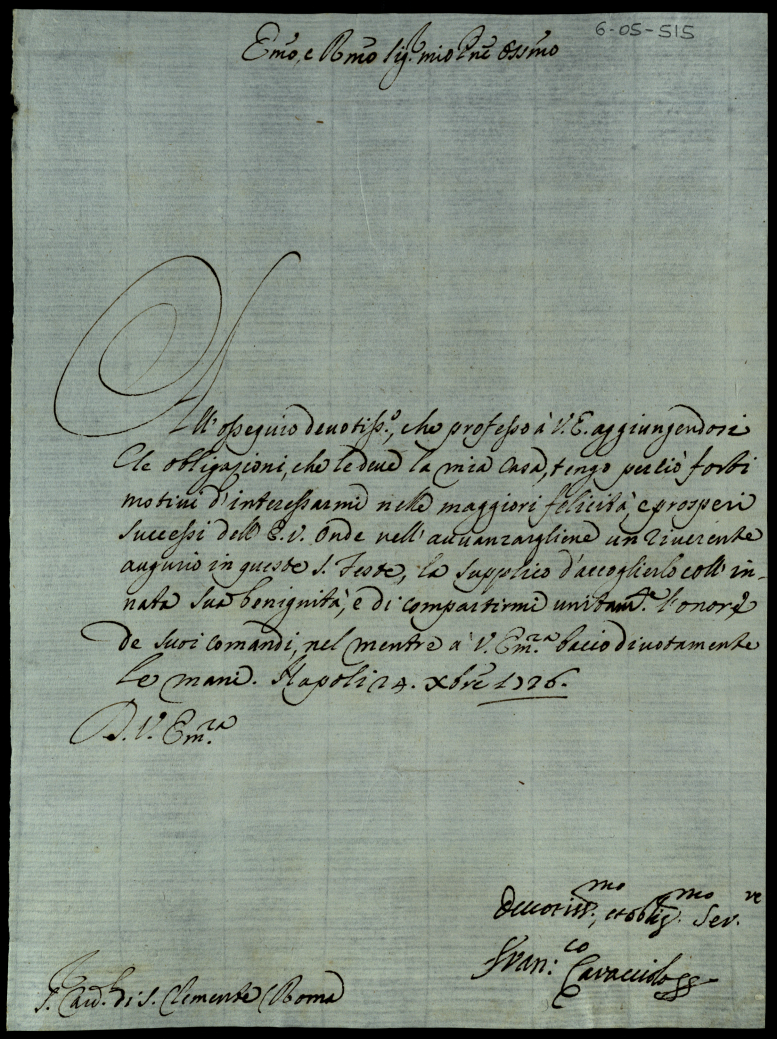 6-05-515
Em̃o, e Rm̃o Sig.r mio Pñe Ossm̃o
All'ossequio deuotiss.o, che professo à V.E. aggiungendosi
le obligazioni, che le deue la mia Casa, tengo perciò forti
motiui d'interessarmi nelle maggiori felicità, e prosperi
successi dell'E.V. Onde nell'auuanzargliene un riuerente
augurio in queste S. Feste, la supplico d'accoglierlo coll'in-
nata sua benignità, e di compartirmi unitam.te l'onore
de suoi comandi, nel mentre à V. Em.ra bacio diuotamente
le mani. Napoli 24. Xbre 1726.
D. V. Em.ra
Deuotiss.mo, et oblig.mo Ser.re
Fran.co Caracciolo
S.r Card. di S. Clemente (Roma)